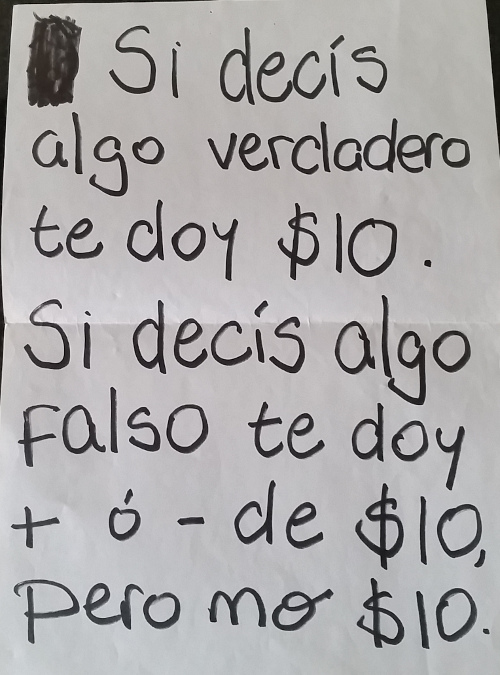 Si decís
algo verdadero
te doy $10.
Si decís algo
Falso te doy
+ ó - de $10,
pero no $10.